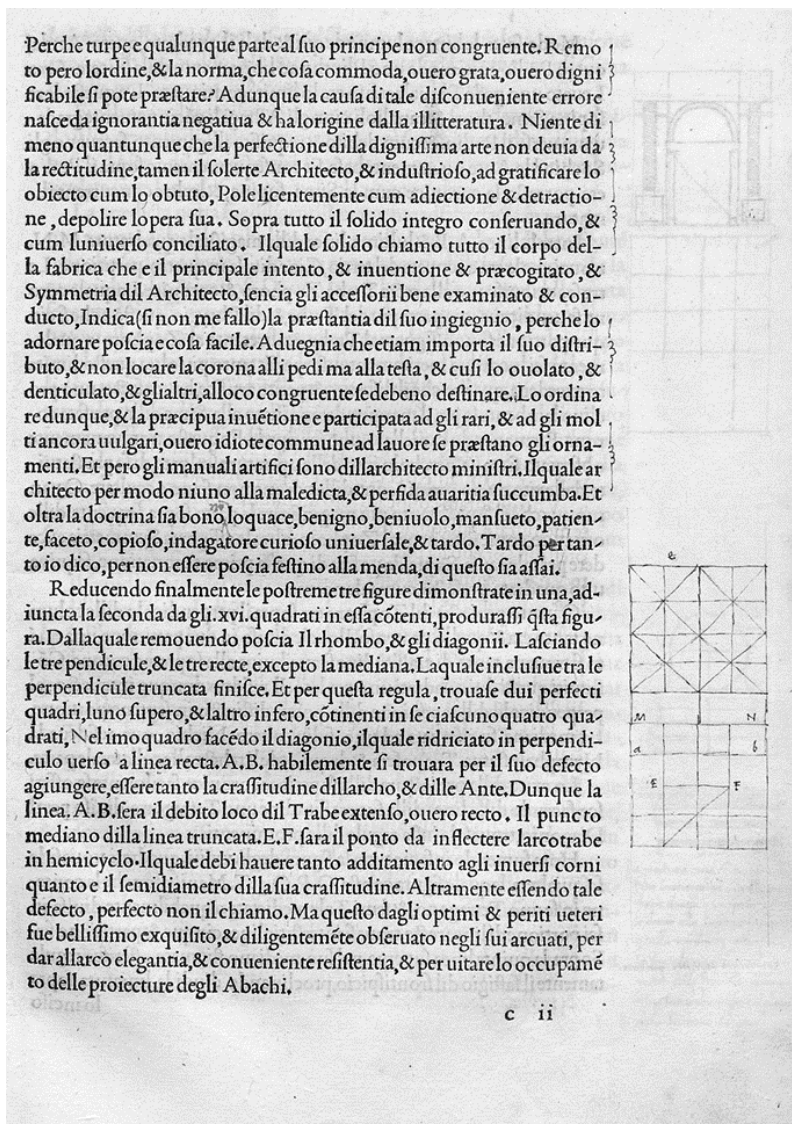 Perche turpe e qualunque parte al ſuo principe non congruente. Remo
to pero lordine,& la norma, che coſa commoda, ouero grata, ouero digni
ficabile ſi pote præſtare? Adunque la cauſa di tale diſconueniente errore
naſce da ignorantia negatiua & ha lorigine dalla illitteratura. Niente di
meno quantunque che la perfectione dilla digniſſima arte non deuia da
la rectitudine, tamen il ſolerte Architecto,& induſtrioſo, ad gratificare lo
obiecto cum lo obtuto, Pole licentemente cum adiectione & detractio-
ne, depolire lopera ſua. Sopra tutto il ſolido integro conſeruando, &
cum luniuerſo conciliato. Ilquale ſolido chiamo tutto il corpo del-
la fabrica che e il principale intento, & inuentione & præcogitato, &
Symmetria dil Architecto, ſencia gli acceſſorii bene examinato & con-
ducto, Indica (ſi non me fallo) la præſtantia dil ſuo ingiegnio, perche lo
adornare poſcia e coſa facile. Aduegnia che etiam importa il ſuo diſtri-
buto,& non locare la corona alli pedi ma alla teſta, & cuſi lo ouolato, &
denticulato,& glialtri, alloco congruente ſe debeno deſtinare. Lo ordina
re dunque,& la præcipua inuẽtione e participata ad gli rari, & ad gli mol
ti ancora uulgari, ouero idiote commune ad lauore ſe præſtano gli orna-
menti. Et pero gli manuali artifici ſono dillarchitecto miniſtri. Ilquale ar
chitecto per modo niuno alla maledicta,& perfida auaritia ſuccumba. Et
oltra la doctrina ſia bono, loquace, benigno, beniuolo, manſueto, patien-
te, faceto, copioſo, indagatore curioſo uniuerſale,& tardo. Tardo per tan-
to io dico, per non eſſere poſcia feſtino alla menda, di queſto ſia aſſai.
Reducendo finalmente le poſtreme tre figure dimonſtrate in una, ad-
iuncta la ſeconda da gli .xvi. quadrati in eſſa cõtenti, produraſſi q̃ſta figu-
ra. Dallaquale remouendo poſcia Il rhombo,& gli diagonii. Laſciando
le tre pendicule,& le tre recte, excepto la mediana. Laquale incluſiue tra le
perpendicule truncata finiſce. Et per queſta regula, trouaſe dui perfecti
quadri, luno ſupero,& laltro infero, cõtinenti in ſe ciaſcuno quatro qua-
drati, Nel imo quadro facẽdo il diagonio, ilquale ridriciato in perpendi-
culo uerſo a linea recta. A.B. habilemente ſi trouara per il ſuo defecto
agiungere, eſſere tanto la craſſitudine dillarcho,& dille Ante. Dunque la
linea. A.B. ſera il debito loco dil Trabe extenſo, ouero recto. Il puncto
mediano dilla linea truncata. E.F. ſara il ponto da inflectere larcotrabe
in hemicyclo. Ilquale debi hauere tanto additamento agli inuerſi corni
quanto e il ſemidiametro dilla ſua craſſitudine. Altramente eſſendo tale
defecto, perfecto non il chiamo. Ma queſto dagli optimi & periti ueteri
fue belliſſimo exquiſito,& diligentemẽte obſeruato negli ſui arcuati, per
dar allarco elegantia,& conueniente reſiſtentia,& per uitare lo occupamẽ
to delle proiecture degli Abachi.
c ii
e
M N
a b
E F